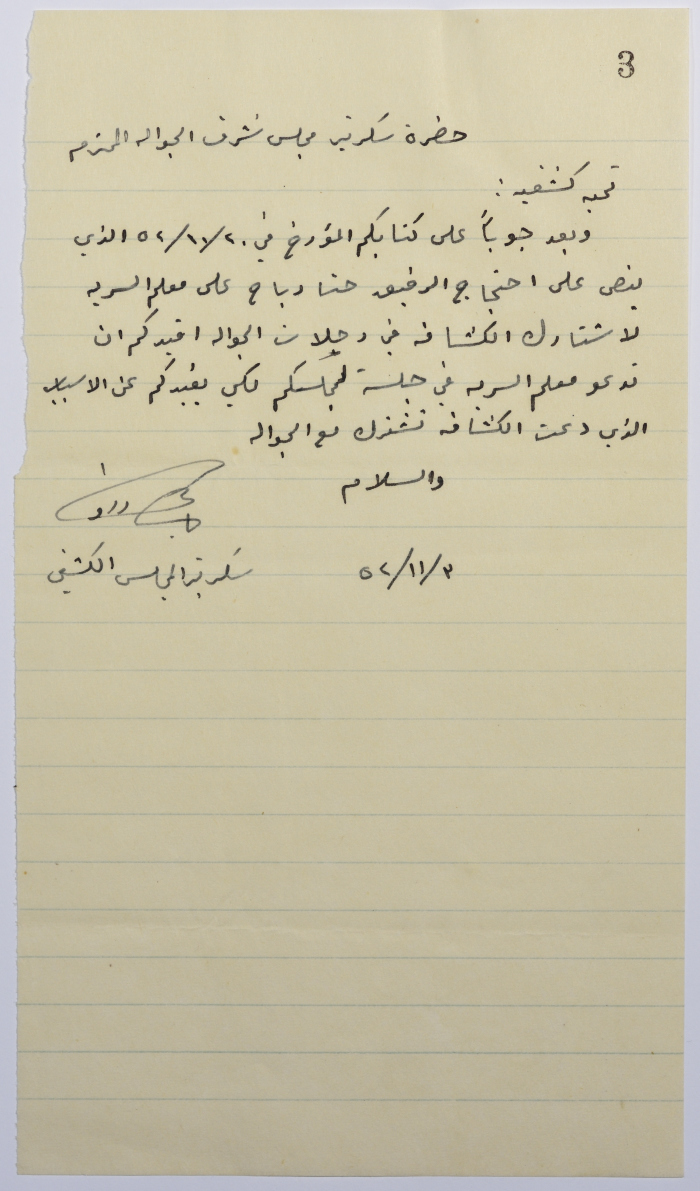 3
حضرة سكرتير مجلس شرف الجواله المحترم
تحيه كشفيه :
وبعد جوباً على كتابكم المؤرخ في ٥٢/١١/٢٠ الذي
ينص على احتجاج الرفيق حنا رباح على معلم السريه
لاشتراك الكشافه في رحلات الجواله افيدكم ان
تدعو معلم السريه في جلسة لمجلسكم لكي يفيدكم عن الاسباب
الذي دعت الكشافه تشترك مع الجواله
والسلام
سكرتير المجلس الكشفي
٥٢/١١/٣